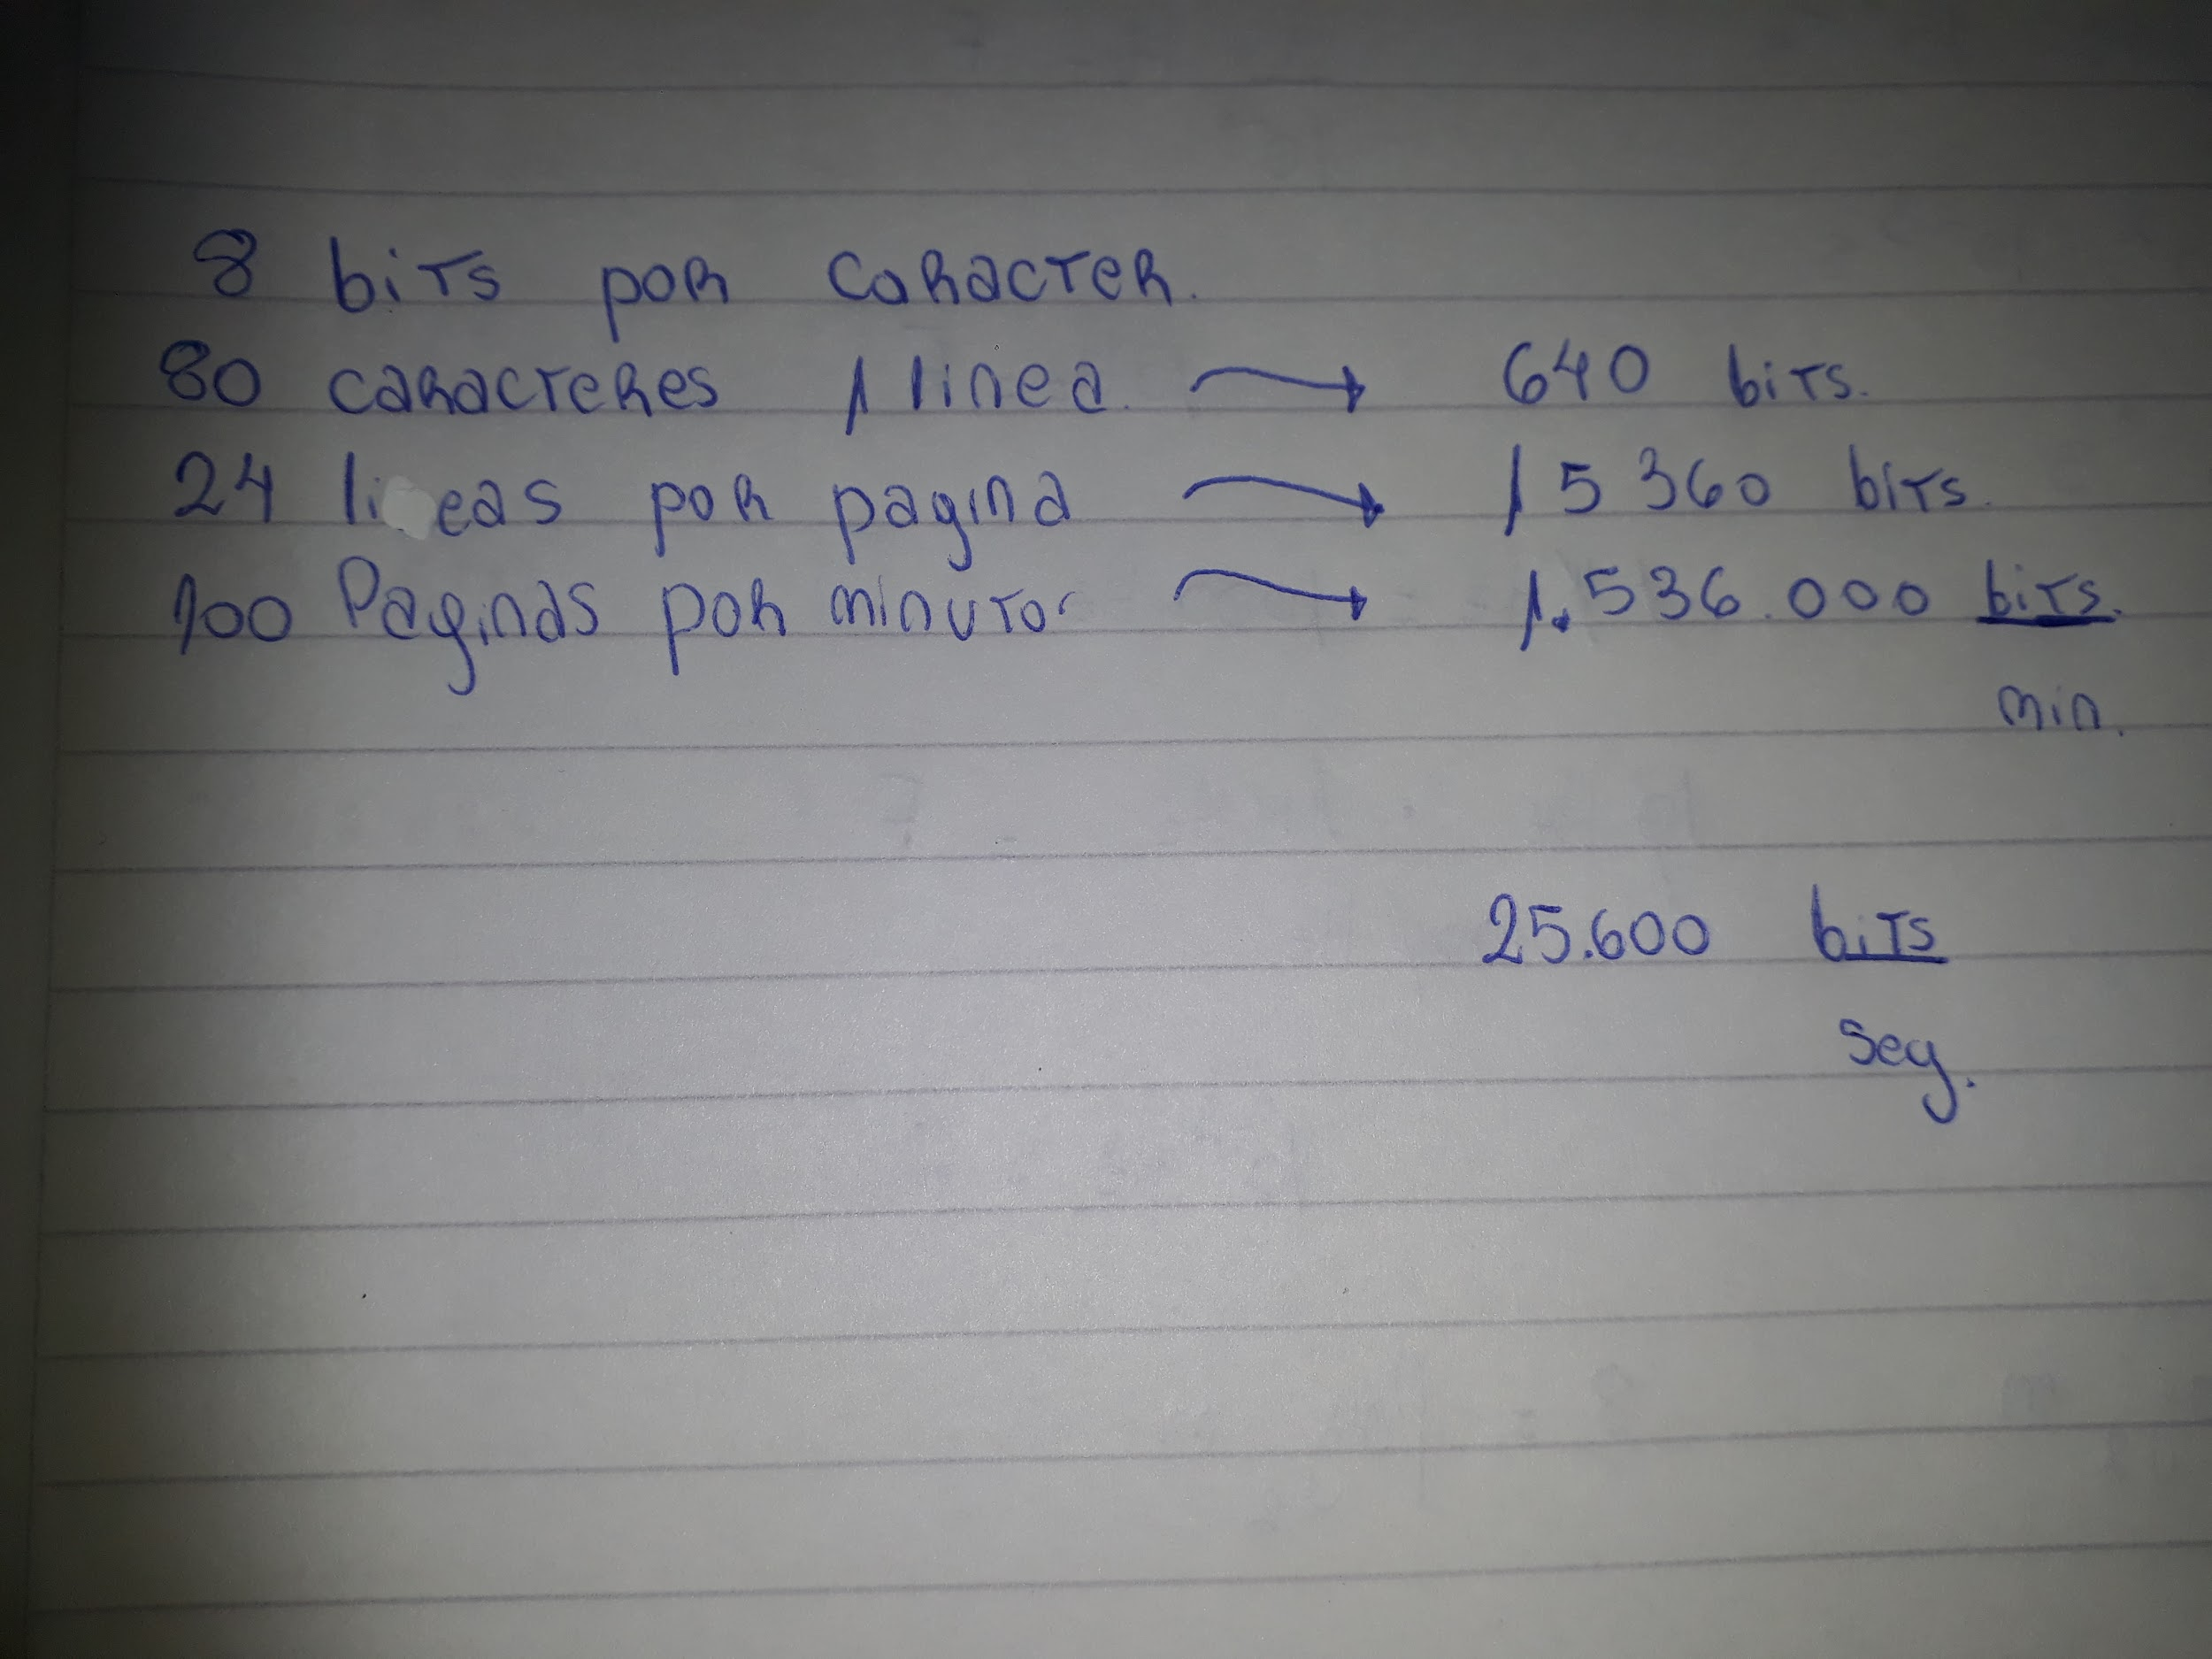 8 bits por caracter.
80 caracteres 1 linea. → 640 bits.
24 li eas por pagina → 15360 bits.
100 Paginas por minuto → 1.536.000 bits.
min.
25.600 bits
seg.